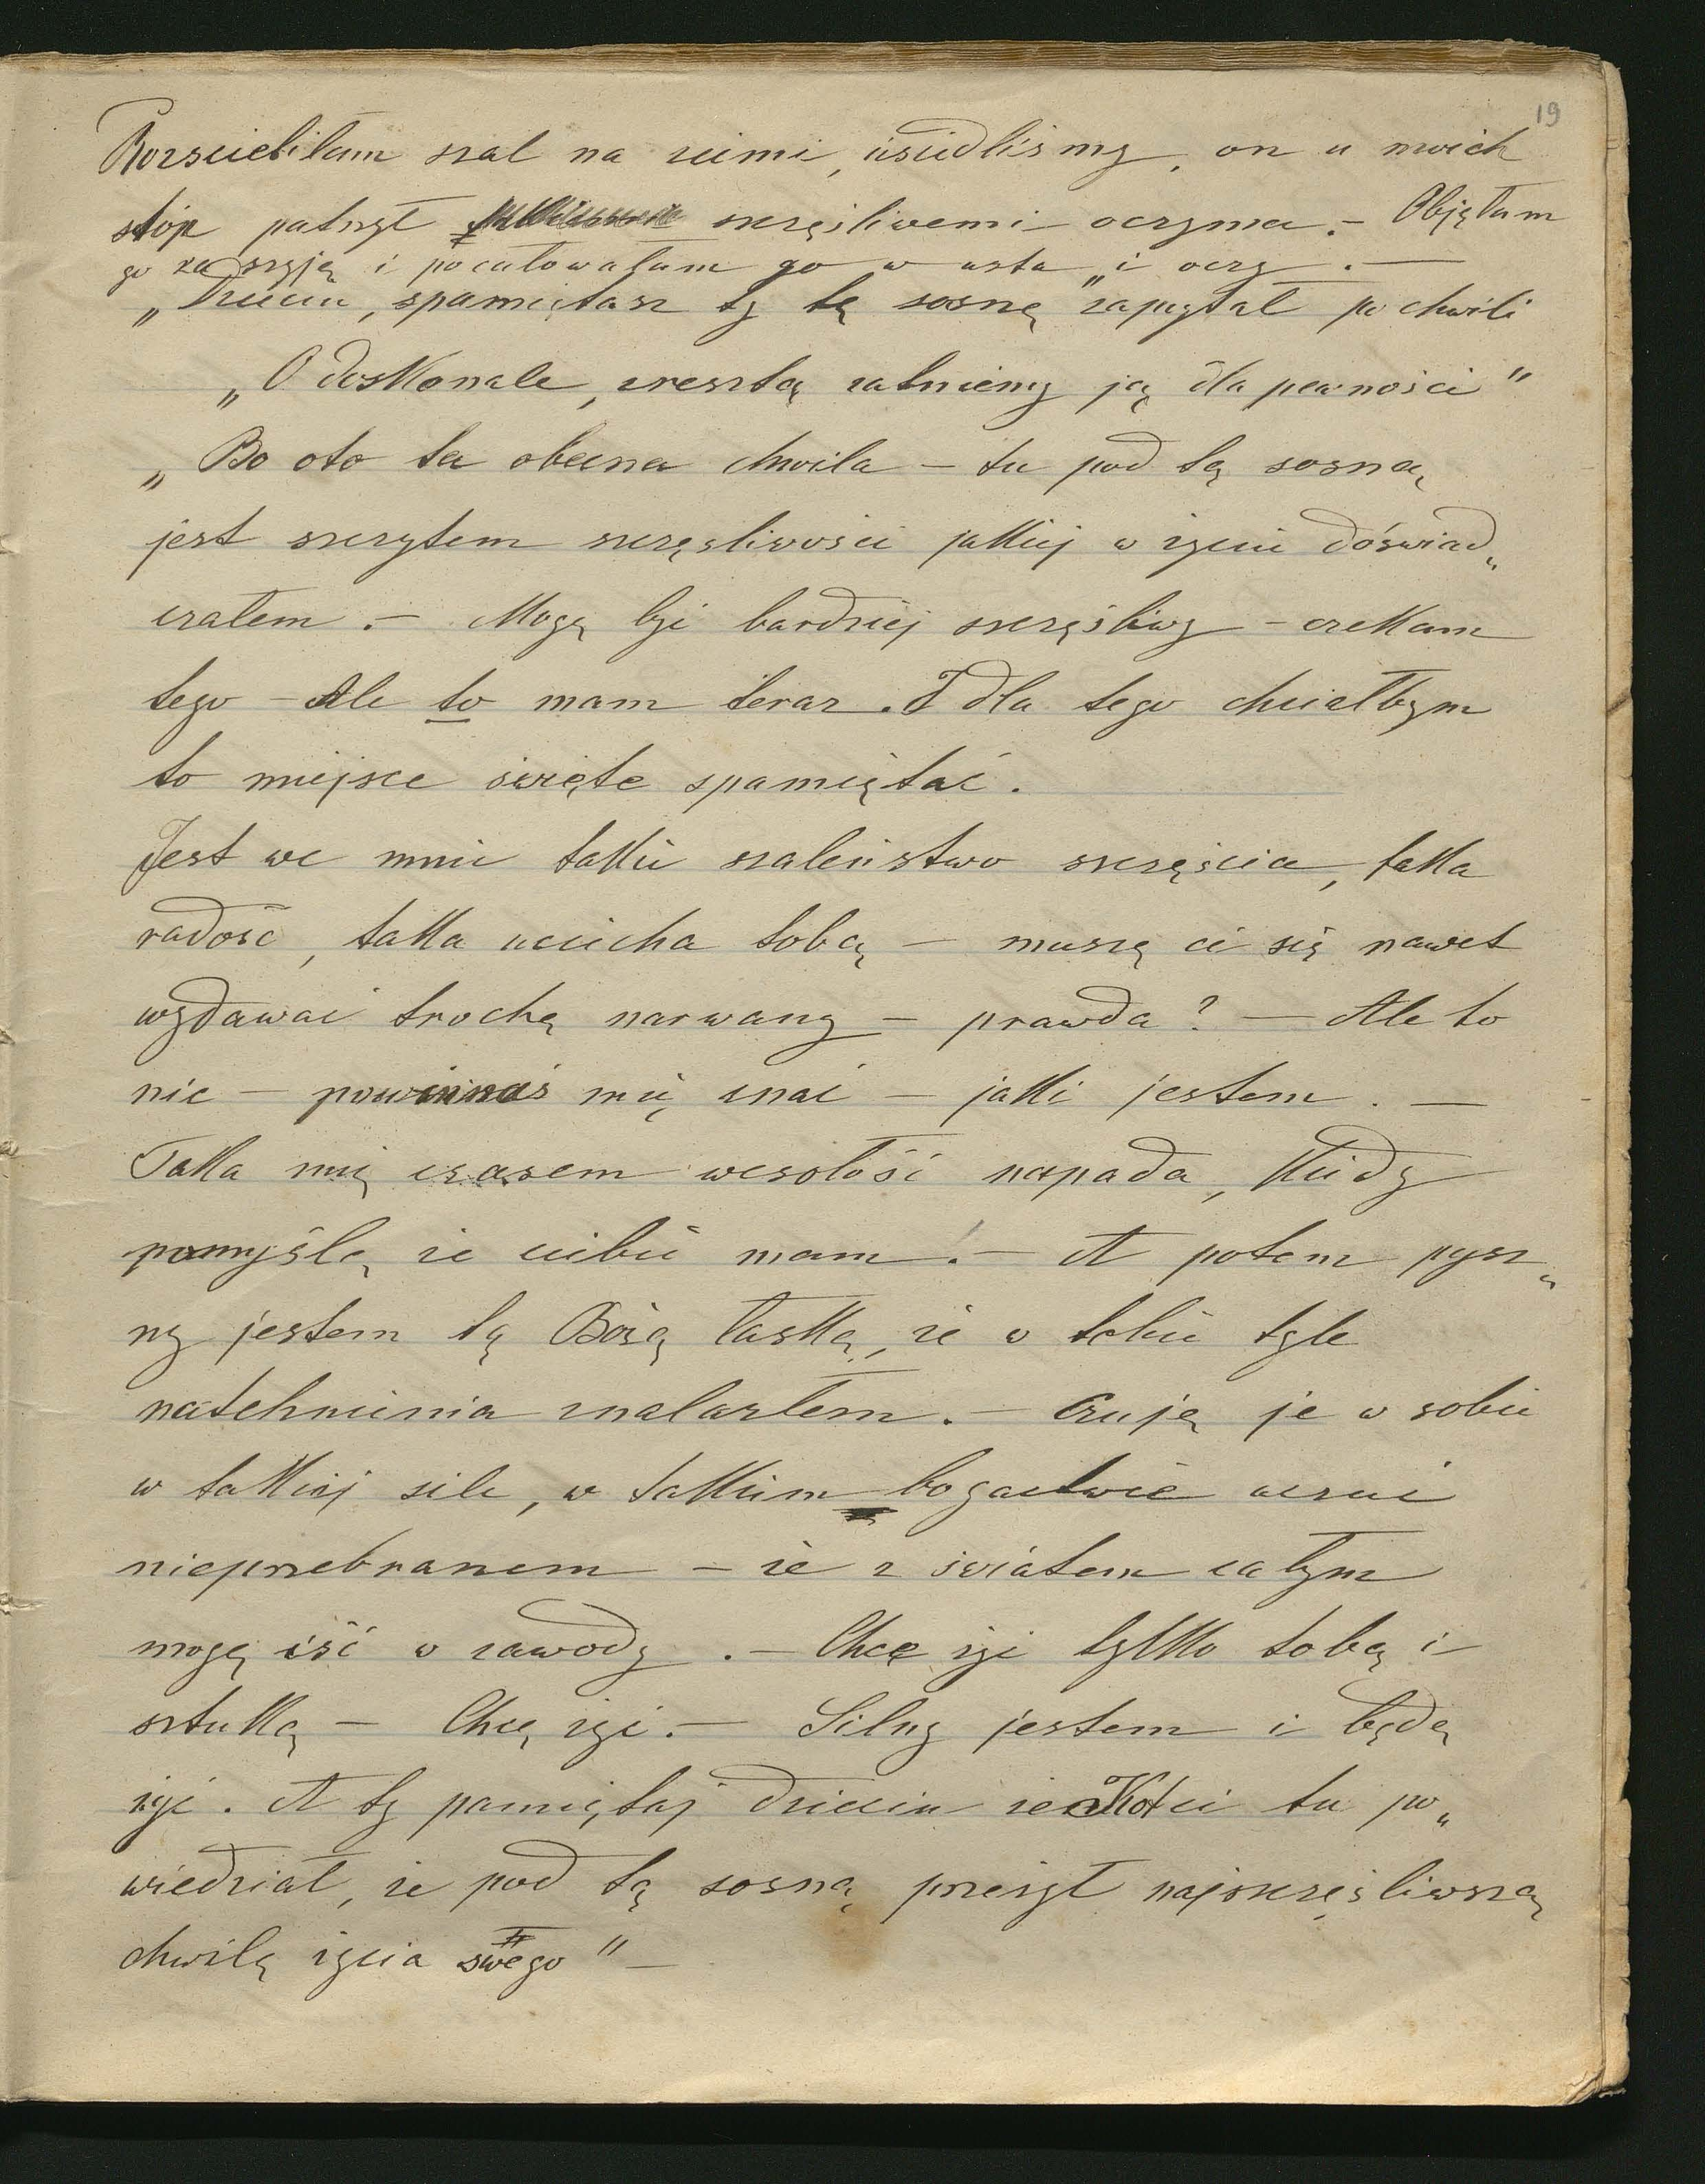 19
Rozścieliłam szal na ziemi, usiedliśmy, on u moich
stóp patrzył szczęśliwemi oczyma. – Objęłam
go za szyję i pocałowałam go w usta i oczy. —
„Dziecin, spamiętasz ty tę sosnę" zapytał po chwili
„O doskonale, zresztą zatniemy ją dla pewności"
„Bo oto ta obecna chwila – tu pod tą sosną,
jest szczytem szczęśliwości jakiej w życiu doświad„
czałem. – Mogę być bardziej szczęśliwy – czekam
tego – Ale to mam teraz. I dla tego chciałbym
to miejsce święte spamiętać.
Jest we mnie takie szaleństwo szczęścia, taka
radość, taka uciecha tobą – muszę ci się nawet
wydawać trochę narwany – prawda? — Ale to
nic – powinnaś mię znać – jaki jestem. —
Taka mię czasem wesołość napada, kiedy
pomyślę, że ciebie mam! – A potem pysz„
ny jestem tą Bożą łaską, że w tobie tyle
natchnienia znalazłem. – Czuję je w sobie
w takiej sile, w takim bogactwie uczuć
nieprzebranem – że z światem całym
mogę iść w zawody. – Chcę żyć tylko tobą i
sztuką – Chcę żyć. – Silny jestem i będę
żyć. A ty pamiętaj dziecin że Kot ci tu po„
wiedział, że pod tą sosną przeżył najszczęśliwszą
chwilę życia swego" —